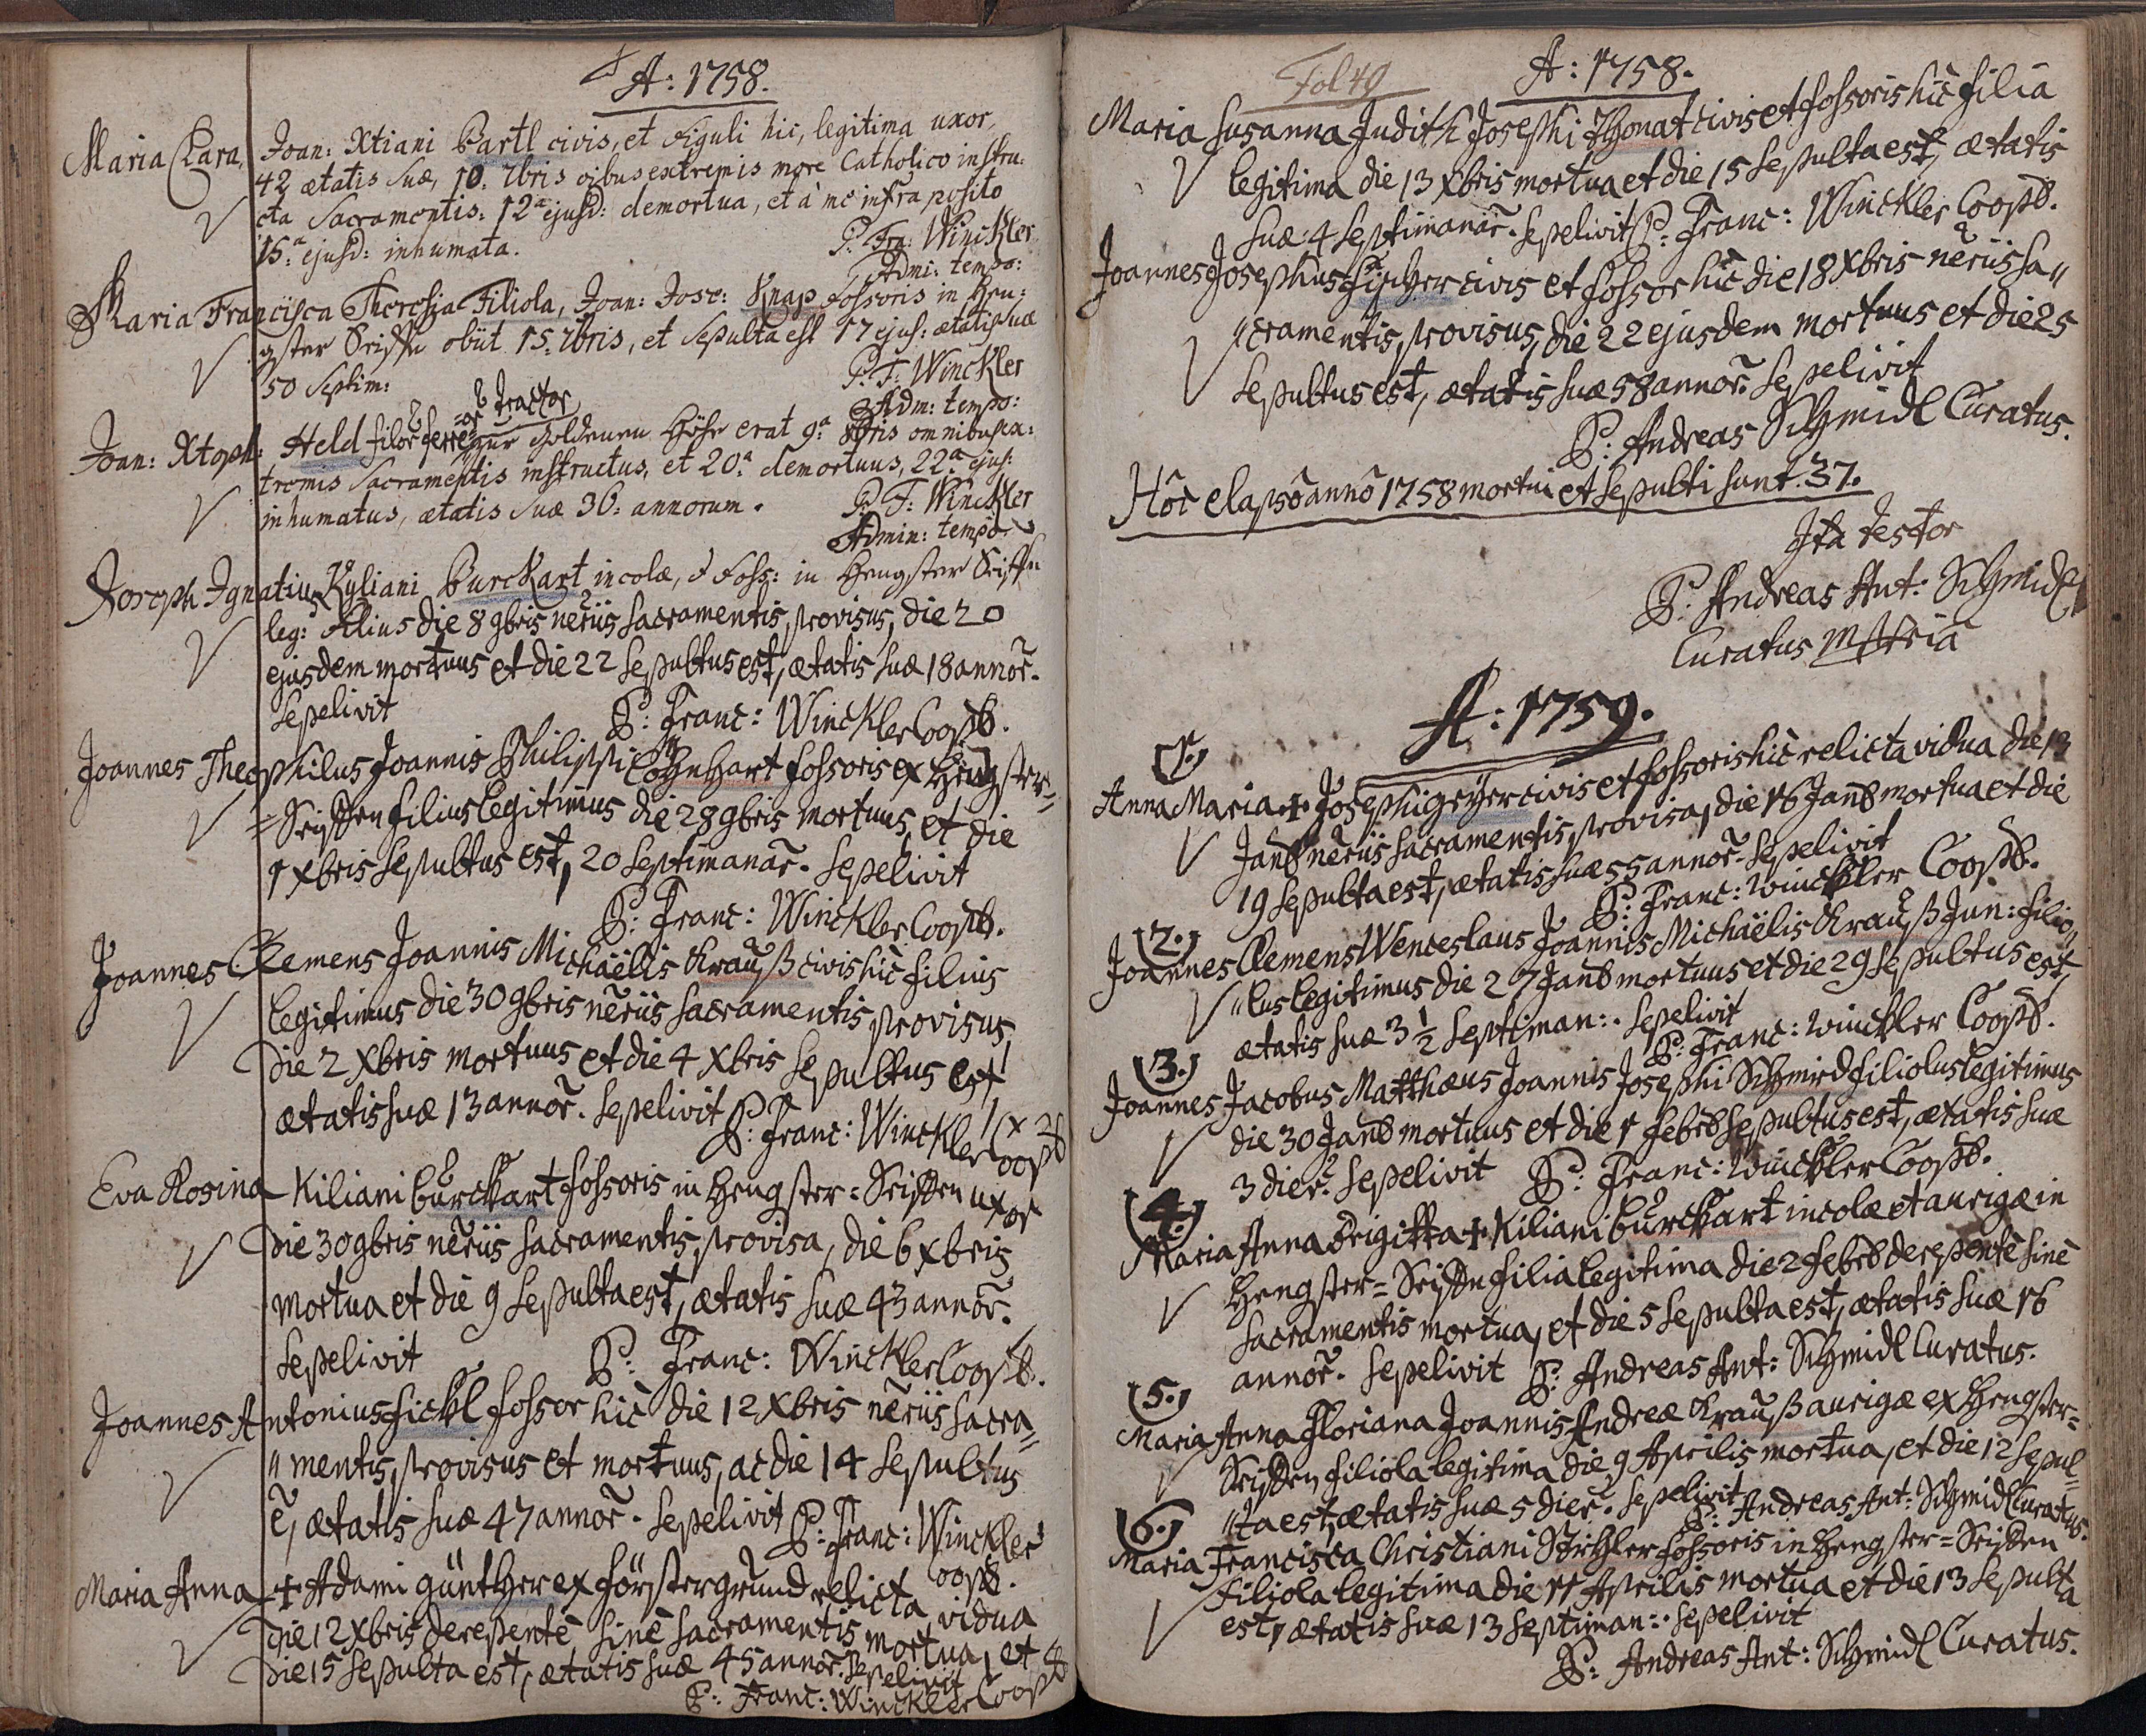 A: 1758.
Maria Clara, Joan: Xtiani Bartl civis, et Figuli hic, legitima uxor,
42 ætatis suæ, 10. 7bris oĩbus extremis more Catholico instru:
cta Sacramentis: 12ᵃ ejusd: demortua, et à me infra posito
15.ᵃ ejusd: inhumata. P. Fra: Winckler
Admi: tempo:
Maria Francisca Theresia Filiola, Joan: Jose: Knap Fossoris in Hen:
gster Seiffn obiit 15. 7bris, et Sepulta est 17 ejus: ætatis suæ
50 Septim: P. F: Winckler
Adm: tempo:
Joan: Xtoph: Held filor ferreor tractor
zur goldenen Höhe erat 9.ᵃ 8bris omnibus ex:
tremis Sacramentis instructus, et 20.ᵃ demortuus, 22.ᵃ ejus:
inhumatus, ætatis suæ 36: annorum. P. F: Winckler
Admin: tempo:
Joseph Ignatius Kyliani Burckart incolæ, & Foss: in Hengster Seiffn
leg: filius die 8 9bris nẽriis sacramentis provisus, die 20
ejusdem mortuus et die 22 sepultus est, ætatis suæ 18 annor̃.
sepelivit P: Franc: Winckler Coopb.
Joannes Theophilus Joannis Philippi Löhnhart fossoris ex Hengster=
=Seiffen filius legitimus die 28 9bris mortuus, et die
1 xbris sepultus est, 20 septimanar̃. sepelivit
P: Franc: Winckler Coopb.
Joannes Clemens Joannis Michaëlis Krauß civis hic filius
legitimus die 30 9bris nẽriis sacramentis provisus,
die 2 xbris mortuus et die 4 xbris sepultus est
ætatis suæ 13 annor̃. sepelivit P: Franc: Winckler Coopb
Eva Rosina Kiliani burckart fossoris in Hengster=Seiffen uxor
die 30 9bris nẽriis sacramentis provisa, die 6 xbris
mortua et die 9 sepulta est, ætatis suæ 43 annor̃.
sepelivit P: Franc: Winckler Coopb.
Joannes Antonius fickl fossor hic die 12 Xbris nẽriis sacra=
"mentis provisus et mortuus, ac die 14 sepultus
ẽ, ætatis suæ 47 annor̃. sepelivit P: Franc: Winckler
Coopb.
Maria Anna + Adami günther ex förstergrund relicta vidua
die 12 xbris derepentè sinè sacramentis mortua, et
die 15 sepulta est, ætatis suæ 45 annor̃. sepelivit
P: Franc: Winckler Coopb
Fol 49
A: 1758.
Maria Susanna Judith Josephi Thonat civis et fossoris hic filia
legitima die 13 xbris mortua et die 15 sepulta est, ætatis
suæ 4 septimanar̃. sepelivit P: Franc: Winckler Coopb.
Joannes Josephus Fischer civis et fossor hic die 18 xbris nẽriis sa"
"cramentis provisus, die 22 ejusdem mortuus et die 25
sepultus est, ætatis suæ 58 annor̃. sepelivit
P: Andreas Schmidl Curatus.
Hôc elapsô annô 1758 mortui et sepulti sunt. 37.
Ita testor
P: Andreas Ant: Schmidl
Curatus mppria
A: 1759.
(1.)
Anna Maria + Josephi geyer civis et fossoris hic relicta vidua die 13
Janb nẽriis sacramentis provisa, die 16 Janb mortua et die
19 sepulta est, ætatis suæ 55 annor̃. sepelivit
P: Franc: Winckler Coopb.
(2.)
Joannes Clemens Wenceslaus Joannis Michaëlis Krauß Jun: filio"
"lus legitimus die 27 Janb mortuus et die 29 sepultus est,
ætatis suæ 3 1/2 septiman:. sepelivit
P: Franc: Winckler Coopb.
(3.)
Joannes Jacobus Matthæus Joannis Josephi Schmird filiolus legitimus
die 30 Janb mortuus et die 1 Febrb sepultus est, ætatis suæ
3 dier̃. sepelivit P: Franc: Winckler Coopb.
(4.)
Maria Anna Brigitta + Kiliani burckart incolæ et aurigæ in
Hengster=Seiffn filia legitima die 2 Febrb derepentè sinè
sacramentis mortua, et die 5 sepulta est, ætatis suæ 16
annor̃. sepelivit P: Andreas Ant: Schmidl Curatus.
(5.)
Maria Anna Floriana Joannis Andreæ Krauß aurigæ ex Hengster=
Seiffen filiola legitima die 9 Aprilis mortua, et die 12 sepul=
"ta est, ætatis suæ 5 dier̃. sepelivit
P: Andreas Ant: Schmidl Curatus.
(6.)
Maria Francisca Christiani Störtzler fossoris in Hengster=Seiffen
filiola legitima die 11 Aprilis mortua et die 13 sepulta
est, ætatis suæ 13 septiman:. sepelivit
P: Andreas Ant: Schmidl Curatus.